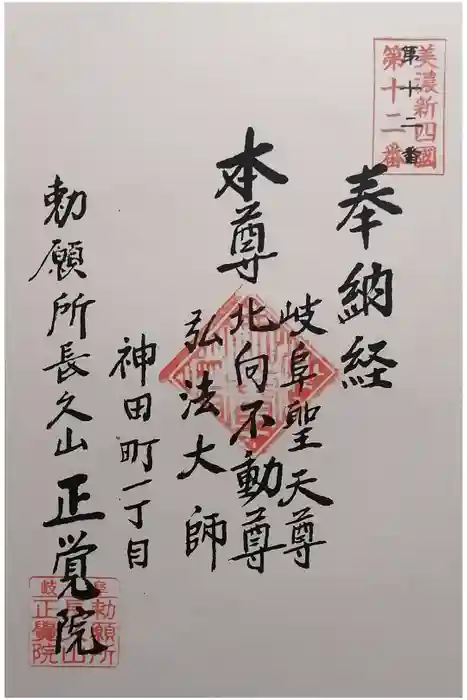 美濃新四國
第十二番
第十二番
奉納経
岐阜聖天尊
本尊北向不動尊
弘法大師
神田町一丁目
勅願所長久山正覚院
岐阜
勅願所
長久山
正覺院